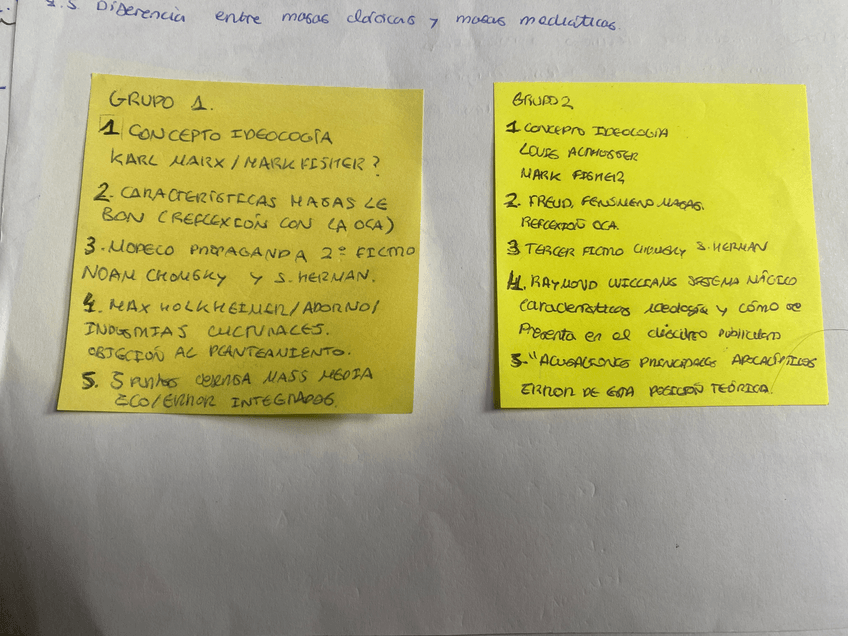 2.3. Diferencia entre masas clásicas y masas mediáticas.
GRUPO 1.
1 CONCEPTO IDEOLOGÍA
KARL MARX / MARK FISHER?
2. CARACTERÍSTICAS MASAS LE
BON (REFLEXIÓN CON LA OCA)
3. MODELO PROPAGANDA 2º FILTRO
NOAM CHOMSKY Y S. HERMAN.
4. MAX HOLKHEIMER/ADORNO/
INDUSTRIAS CULTURALES.
OBJECIÓN AL PLANTEAMIENTO.
5. 5 PUNTOS DEFENSA MASS MEDIA
ECO/ERROR INTEGRADOS.
GRUPO 2
1 CONCEPTO IDEOLOGÍA
LOUIS ALTHUSSER
MARK FISHER
2. FREUD, FENÓMENO MASAS.
REFLEXIÓN OCA.
3 TERCER FILTRO CHOMSKY S. HERMAN
4. RAYMOND WILLIAMS SISTEMA MÁGICO
características ideología y cómo se
presenta en el discurso publicitario
5. "ACUSACIONES PRINCIPALES APOCALÍPTICOS
ERROR DE ESTA POSICIÓN TEÓRICA.